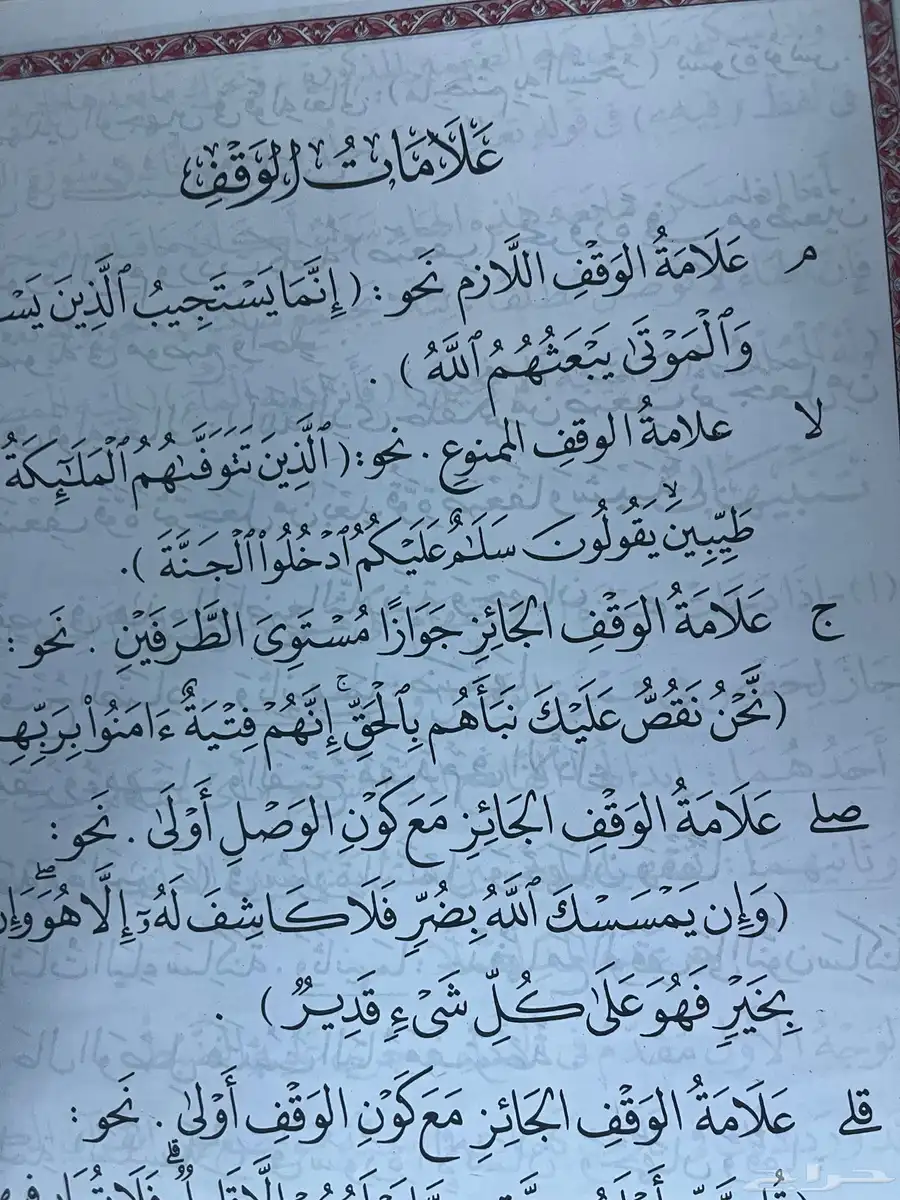 عَلَامَاتُ الوَقْفِ
م عَلَامَةُ الوَقْفِ اللَّازِمِ نَحو : ( إِنَّمَا يَسْتَجِيبُ ٱلَّذِينَ
وَٱلْمَوْتَىٰ يَبْعَثُهُمُ ٱللَّهُ ) .
لا علامةُ الوقفِ الممنوعِ . نحو : ( ٱلَّذِينَ تَتَوَفَّىٰهُمُ ٱلْمَلَٰٓئِكَةُ
طَيِّبِينَۙ يَقُولُونَ سَلَٰمٌ عَلَيْكُمُ ٱدْخُلُوا۟ ٱلْجَنَّةَ ) .
ج عَلَامَةُ الوَقْفِ الجَائِزِ جَوَازًا مُسْتَوِىَ الطَّرَفَيْنِ . نَحو :
( نَّحْنُ نَقُصُّ عَلَيْكَ نَبَأَهُم بِٱلْحَقِّۚ إِنَّهُمْ فِتْيَةٌ ءَامَنُوا۟
صلے عَلَامَةُ الوَقْفِ الجَائِزِ مَعَ كَوْنِ الوَصْلِ أَوْلَىٰ . نَحو :
( وَإِن يَمْسَسْكَ ٱللَّهُ بِضُرٍّ فَلَا كَاشِفَ لَهُۥٓ إِلَّا هُوَۖ
بِخَيْرٍ فَهُوَ عَلَىٰ كُلِّ شَىْءٍ قَدِيرٌ ) .
قلے عَلَامَةُ الوَقْفِ الجَائِزِ مَعَ كَوْنِ الوَقْفِ أَوْلَىٰ . نَحو :
حراج